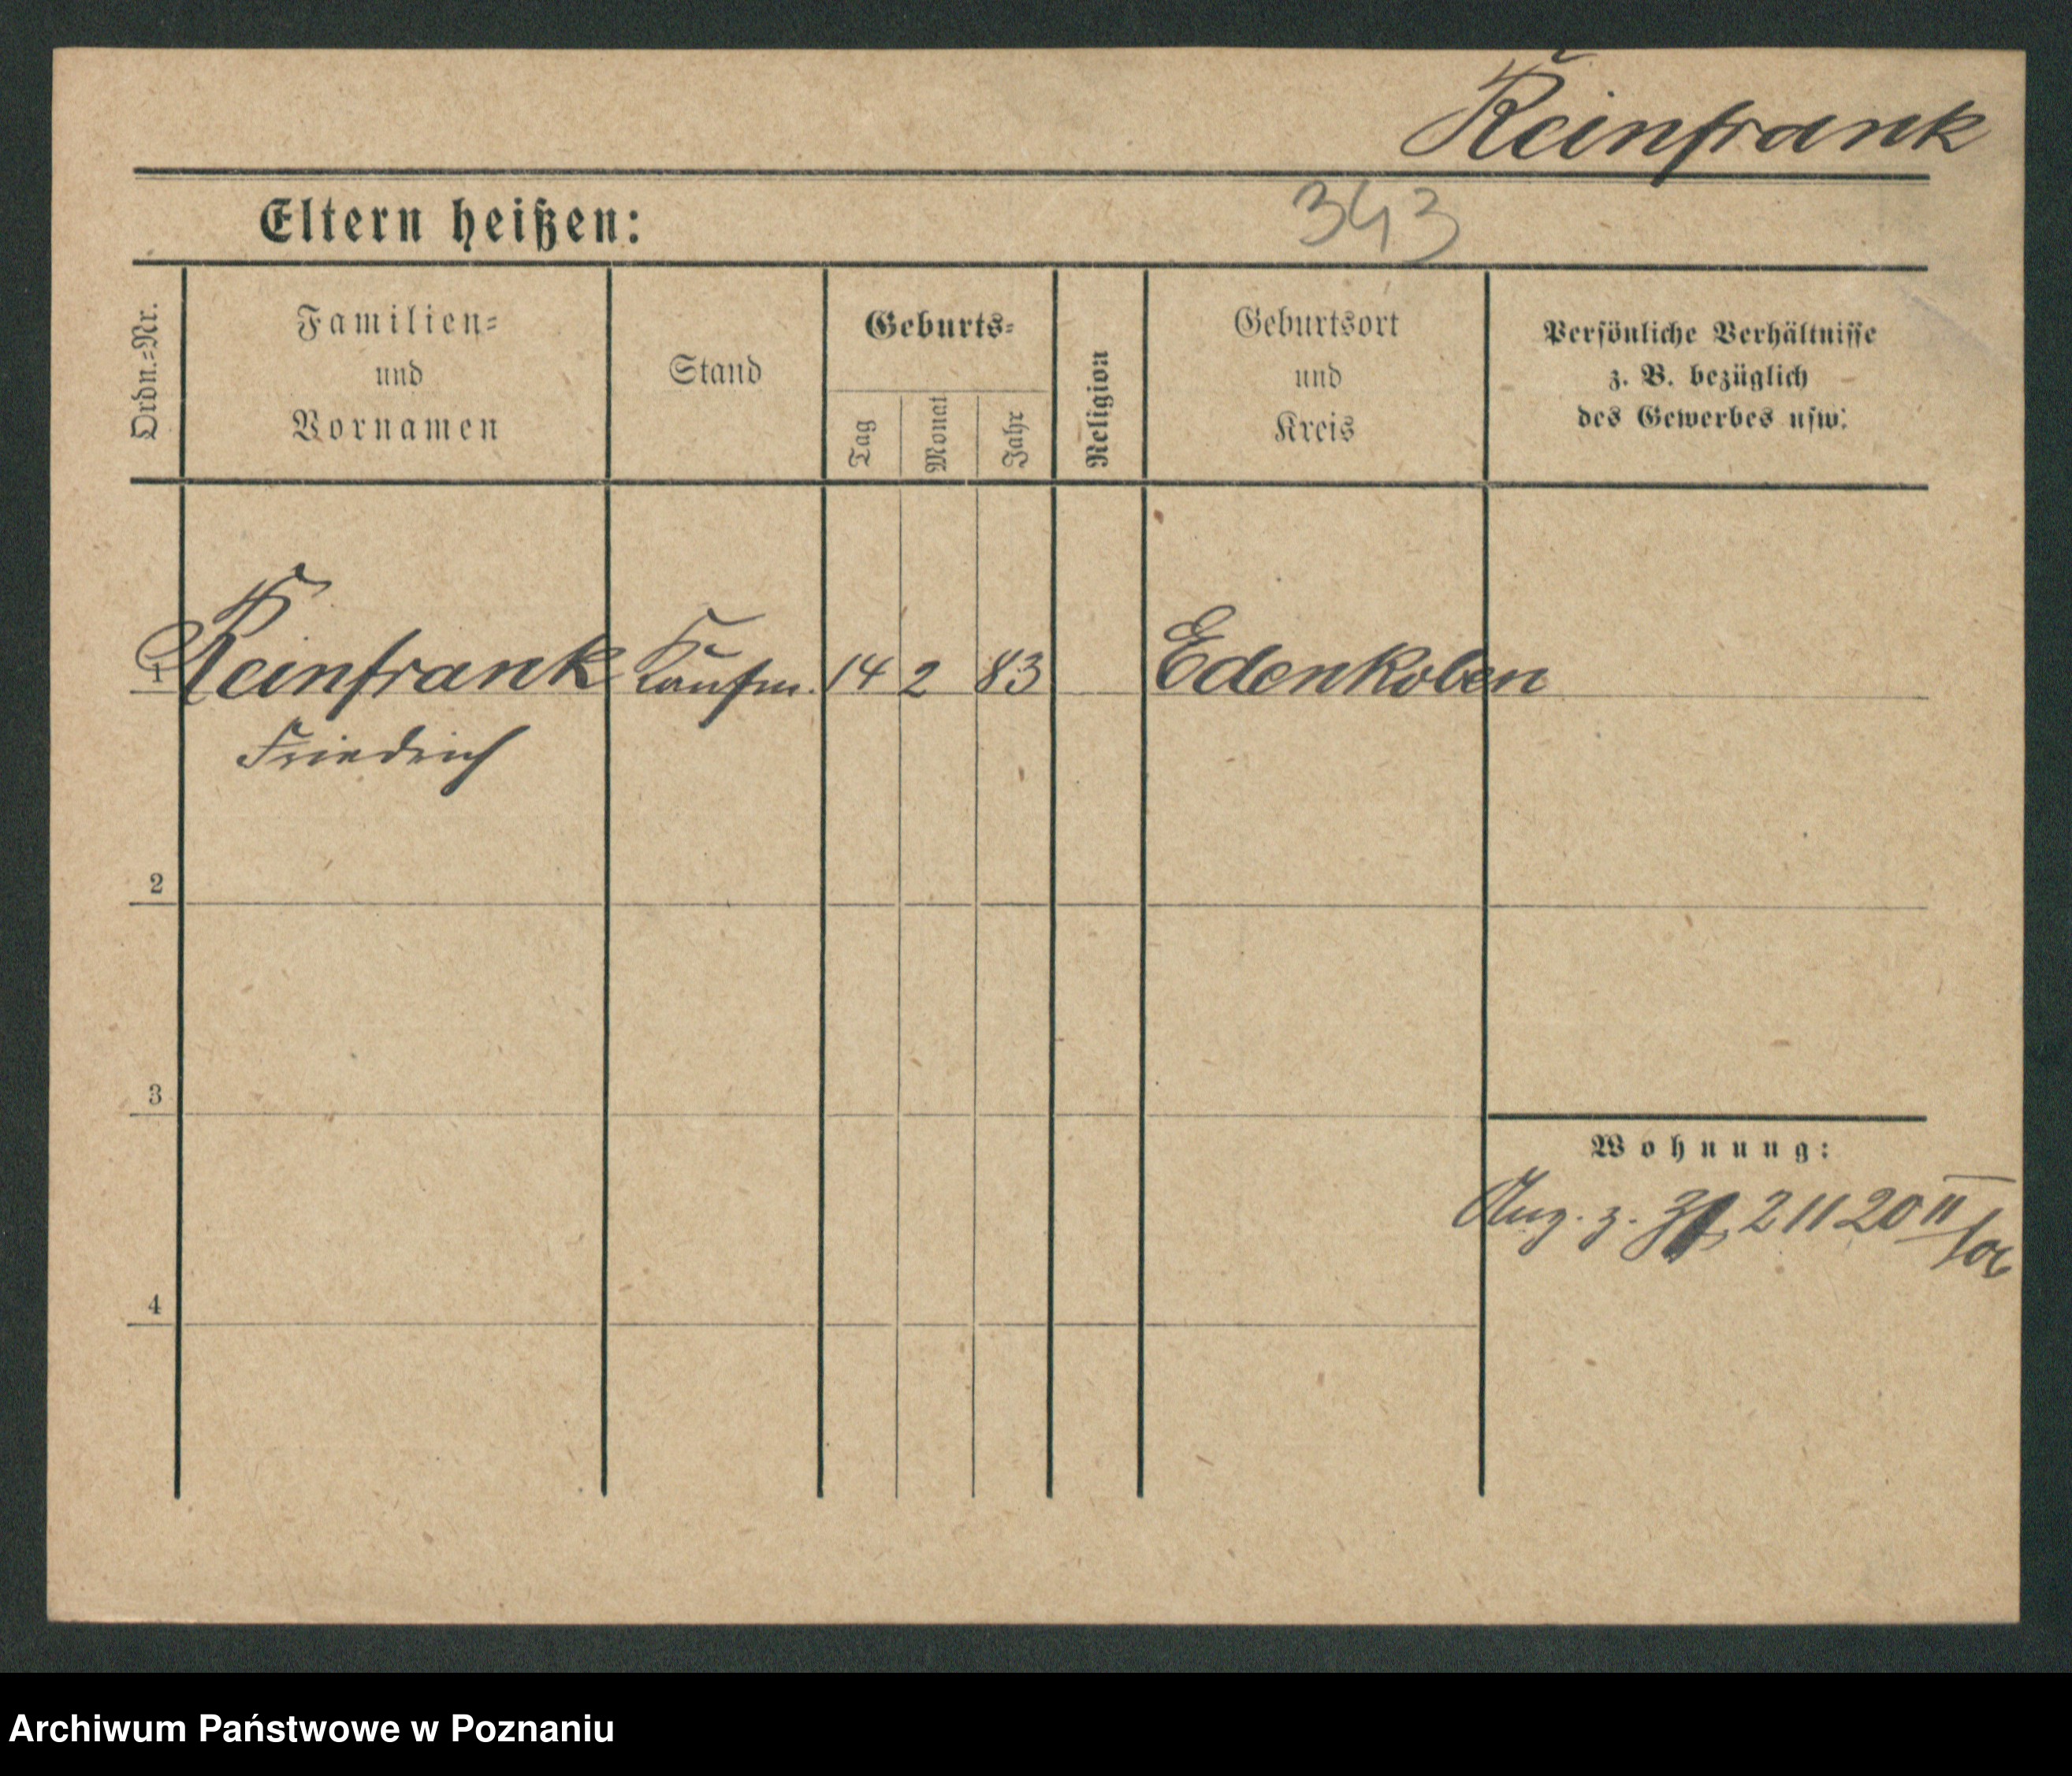 Reinfrank
Eltern heißen:
343
Ordn.=Nr.
Familien=
und
Vornamen
Stand
Geburts=
Tag
Monat
Jahr
Religion
Geburtsort
und
Kreis
Persönliche Verhältnisse
z. B. bezüglich
des Gewerbes usw.
1 Reinfrank Kaufm. 14 2 83 Edenkoben
Friedrich
2
3
Wohnung:
z. 211 20 II
4
Archiwum Państwowe w Poznaniu